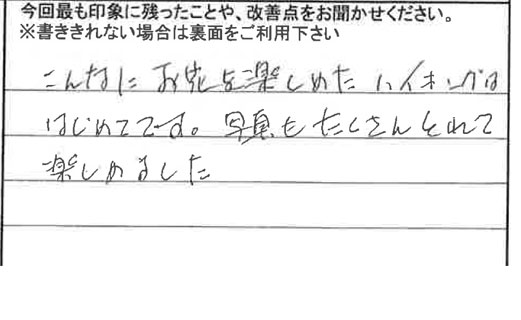 今回最も印象に残ったことや、改善点をお聞かせください。
※書ききれない場合は裏面をご利用下さい
こんなにお花を楽しめたハイキングは
はじめてです。写真もたくさんとれて
楽しめました